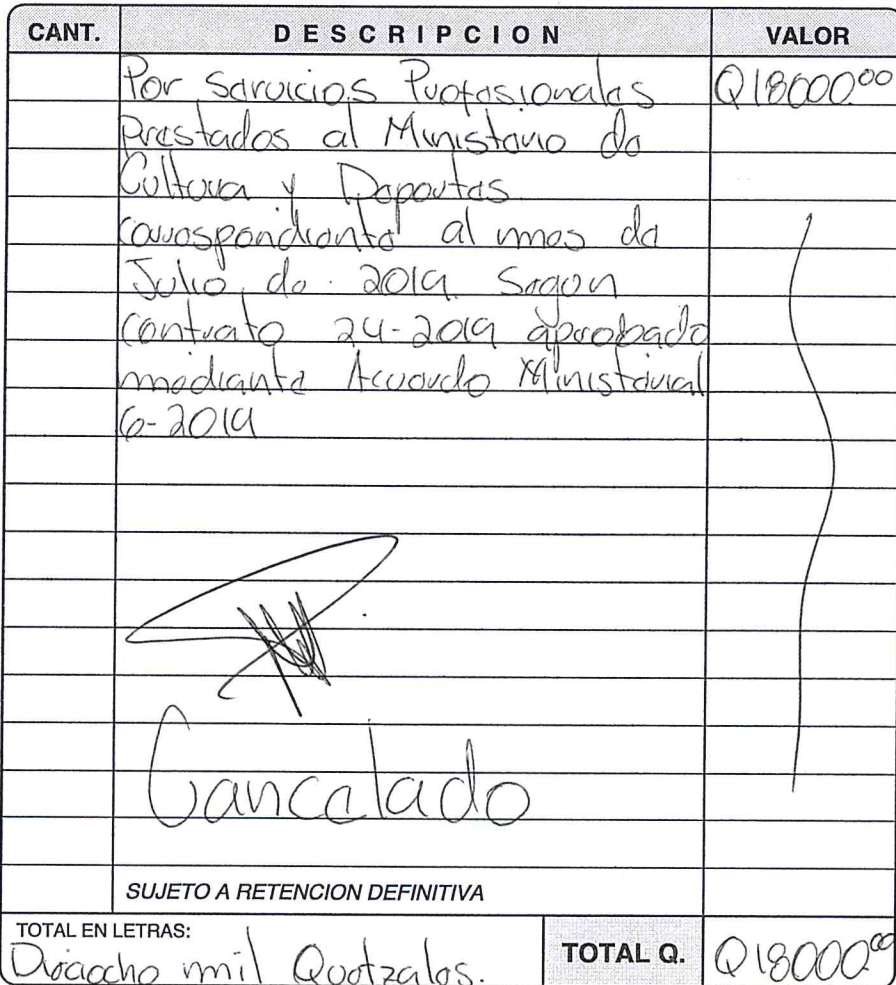 CANT. DESCRIPCION VALOR
Por Servicios Profesionales Q18000.00
Prestados al Ministerio de
Cultura y Deportes
correspondiente al mes de
Julio de 2019 Segun
contrato 24-2019 aprobado
mediante Acuerdo Ministerial
6-2019
Cancelado
SUJETO A RETENCION DEFINITIVA
TOTAL EN LETRAS:
Dieciocho mil Quetzales. TOTAL Q. Q18000.00